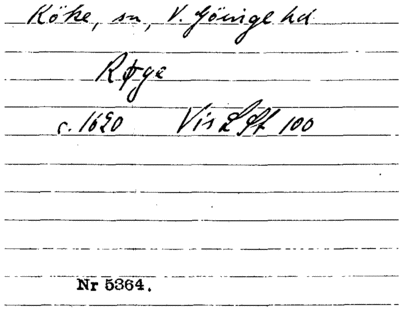 Röke, sn, V. Göinge hd
Røge
c. 1620 Vis L St 100
Nr 5364.